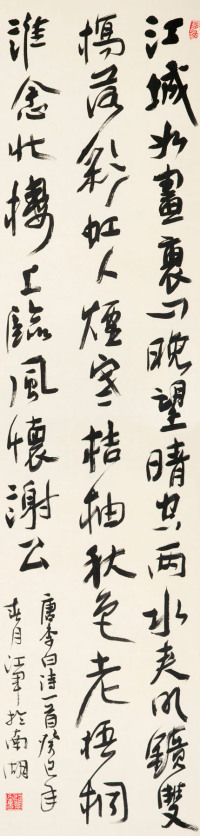 江城如畫裏山晚望晴空兩水夾明鏡雙
橋落彩虹人煙寒桔柚秋色老梧桐
誰念北樓上臨風懷謝公
唐李白詩一首癸巳年
春月江軍於南湖